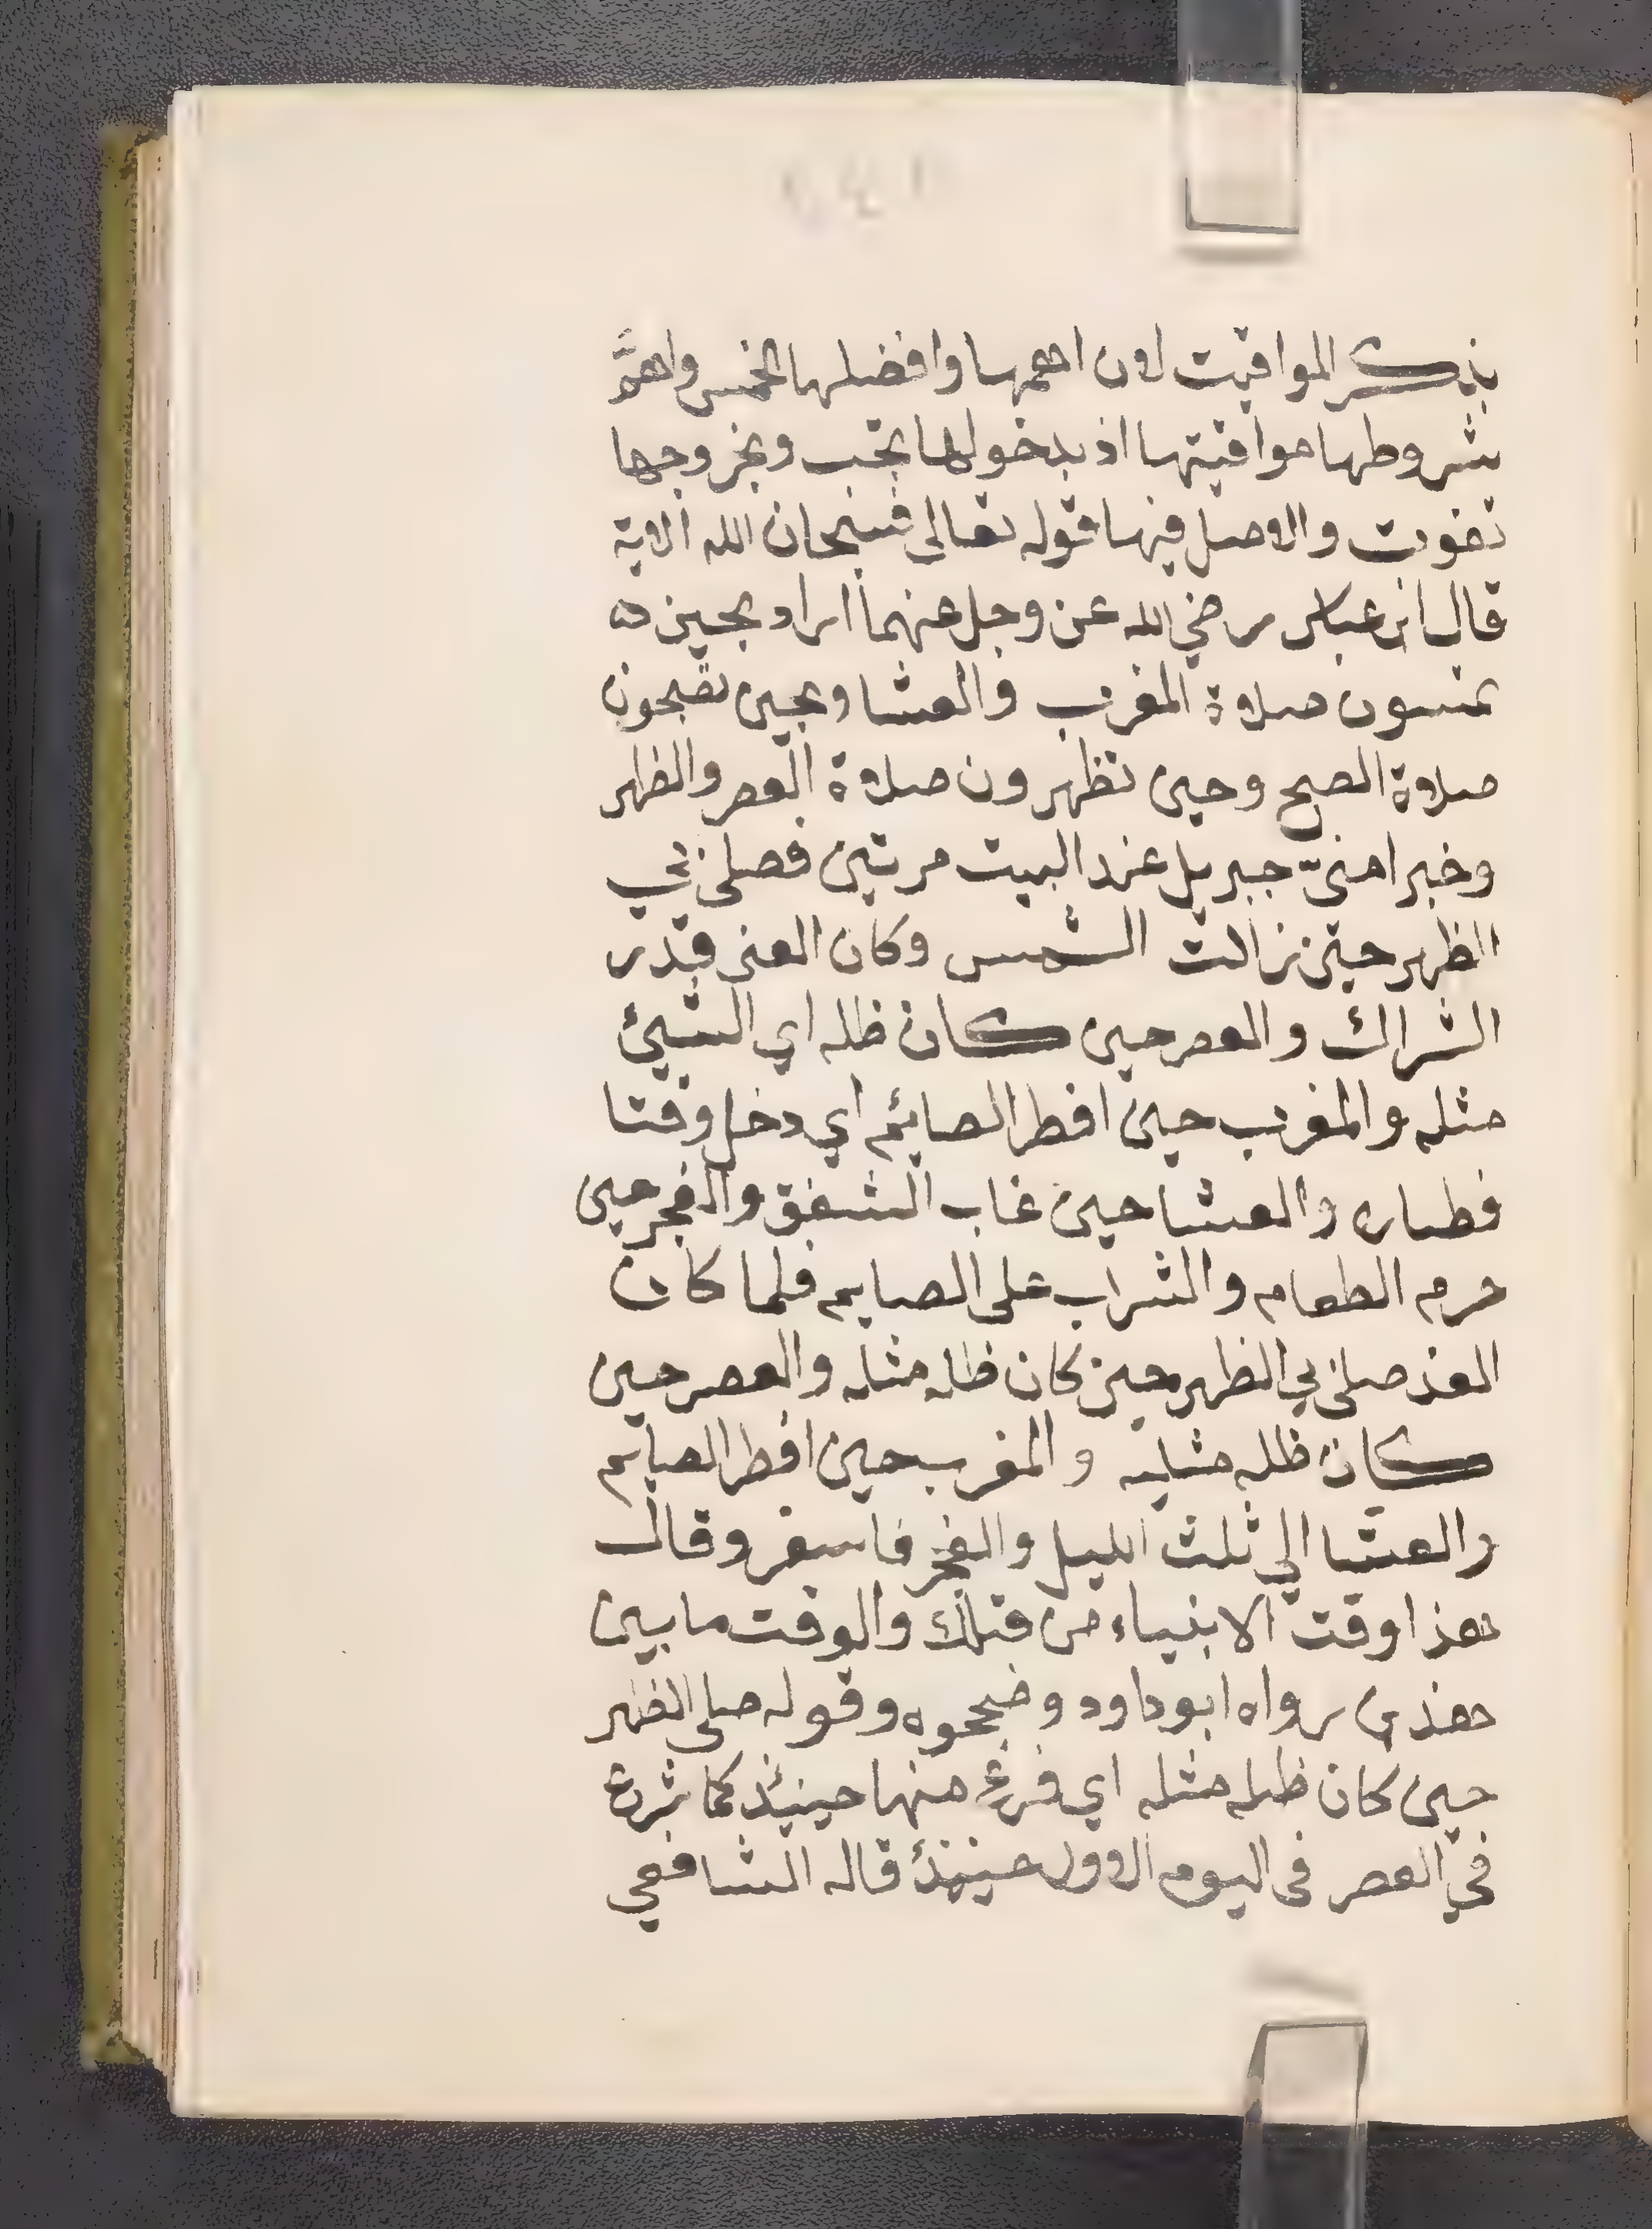 بذكر المواقيت لان اهمها وافضلها الخمس واهمّ
شروطها مواقيتها اذ بدخولها تجب وبخروجها
تفوت والاصل فيها قوله تعالى فسبحان الله الاية
قال ابن عباس رضي الله عز وجل عنهما اراد بحين
تمسون صلاة المغرب والعشا وبحين تصبحون
صلاة الصبح وحين تظهرون صلاة العصر والظهر
وخبر امنيّ جبريل عند البيت مرتين فصلى بي
الظهر حين زالت الشمس وكان الفئ قدر
الشراك والعصر حين كان ظله اي الشيئ
مثله والمغرب حين افطر الصائم اي دخل وقت ا
فطاره والعشا حين غاب الشفق والفجر حين
حرم الطعام والشراب على الصايم فلما كان
الغد صلى بي الظهر حين كان ظله مثله والعصر حين
كان ظله مثليه والمغرب حين افطر الصايم
والعشا الي ثلث الليل والفجر فاسفر وقال
هذا وقت الانبياء من قبلك والوقت ما بين
هذين رواه ابو داود وصححوه وقوله صلى الظهر
حين كان ظله مثله اي فرغ منها حينئذ كما شرع
في العصر فى اليوم الاول حينئذ قاله الشافعي